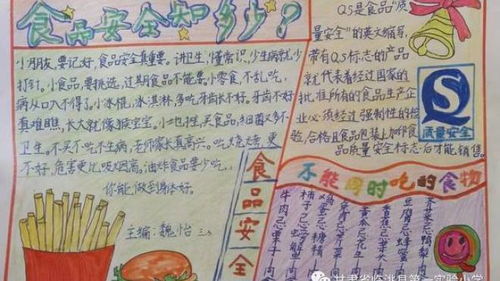 食品安全知多少?
小朋友,要记好,食品安全真重要.讲卫生,懂常识,少生病就少
打针,小食品,要挑选,过期食品不能要.小零食,不乱吃,
病从口入不得了.小冰棍,冰淇淋,多吃牙齿长不好.牙齿不好
真难瞧,长大就像猴宝宝.小地摊,买食品,细菌又多不
卫生,不买不吃不生病,老师家长真高兴.吃烧烤,更
不好,危害更比吸烟高,油炸食品要少吃,
你能做到身体好.
主编:魏怡
食品安全
QS是食品"质
量安全"的英文缩写,
带有QS标志的产品
就代表着经过国家的
批准所有的食品生产企
业必须经过强制性的检
验,合格且食品包装上加印食
品质量安全标志后才能销售.
质量安全
不能同时吃的食物
芥菜忌鸭梨肉
豆腐忌蜂蜜
黄瓜忌花生
柿子忌螃蟹
牛肉忌栗子肉
甘肃省临洮县第一实验小学